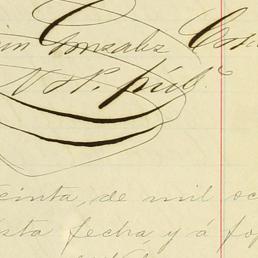 Gonzalez Cos
N. P. púbº
cinta, de mil oc
ésta fecha, y á fo